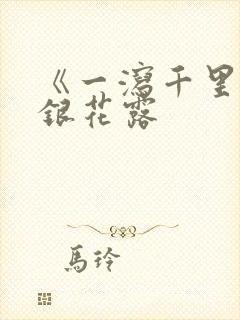 《一瀉千里
銀花露
馬玲